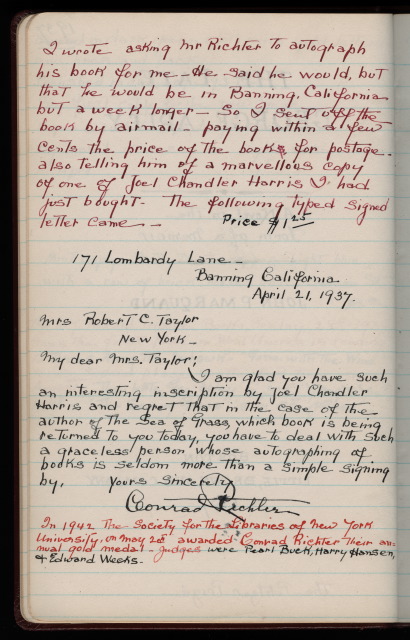 I wrote asking Mr Richter to autograph
his book for me — He said he would, but
that he would be in Banning, California
but a week longer — So I sent off the
book by airmail — paying within a few
cents the price of the books for postage.
also telling him of a marvellous copy
of one of Joel Chandler Harris I had
just bought. The following typed signed
letter came — Price $1.25
171 Lombardy Lane —
Banning California
April 21, 1937.
Mrs Robert C. Taylor
New York —
My dear Mrs. Taylor:
I am glad you have such
an interesting inscription by Joel Chandler
Harris and regret that in the case of the
author of The Sea of Grass, which book is being
returned to you today, you have to deal with such
a graceless person whose autographing of
books is seldom more than a simple signing
by. Yours Sincerely
Conrad Richter
In 1942 The Society for the Libraries of New York
University, on may 20 awarded Conrad Richter their an-
nual gold medal — judges were Pearl Buck, Harry Hansen,
& Edward Weeks.